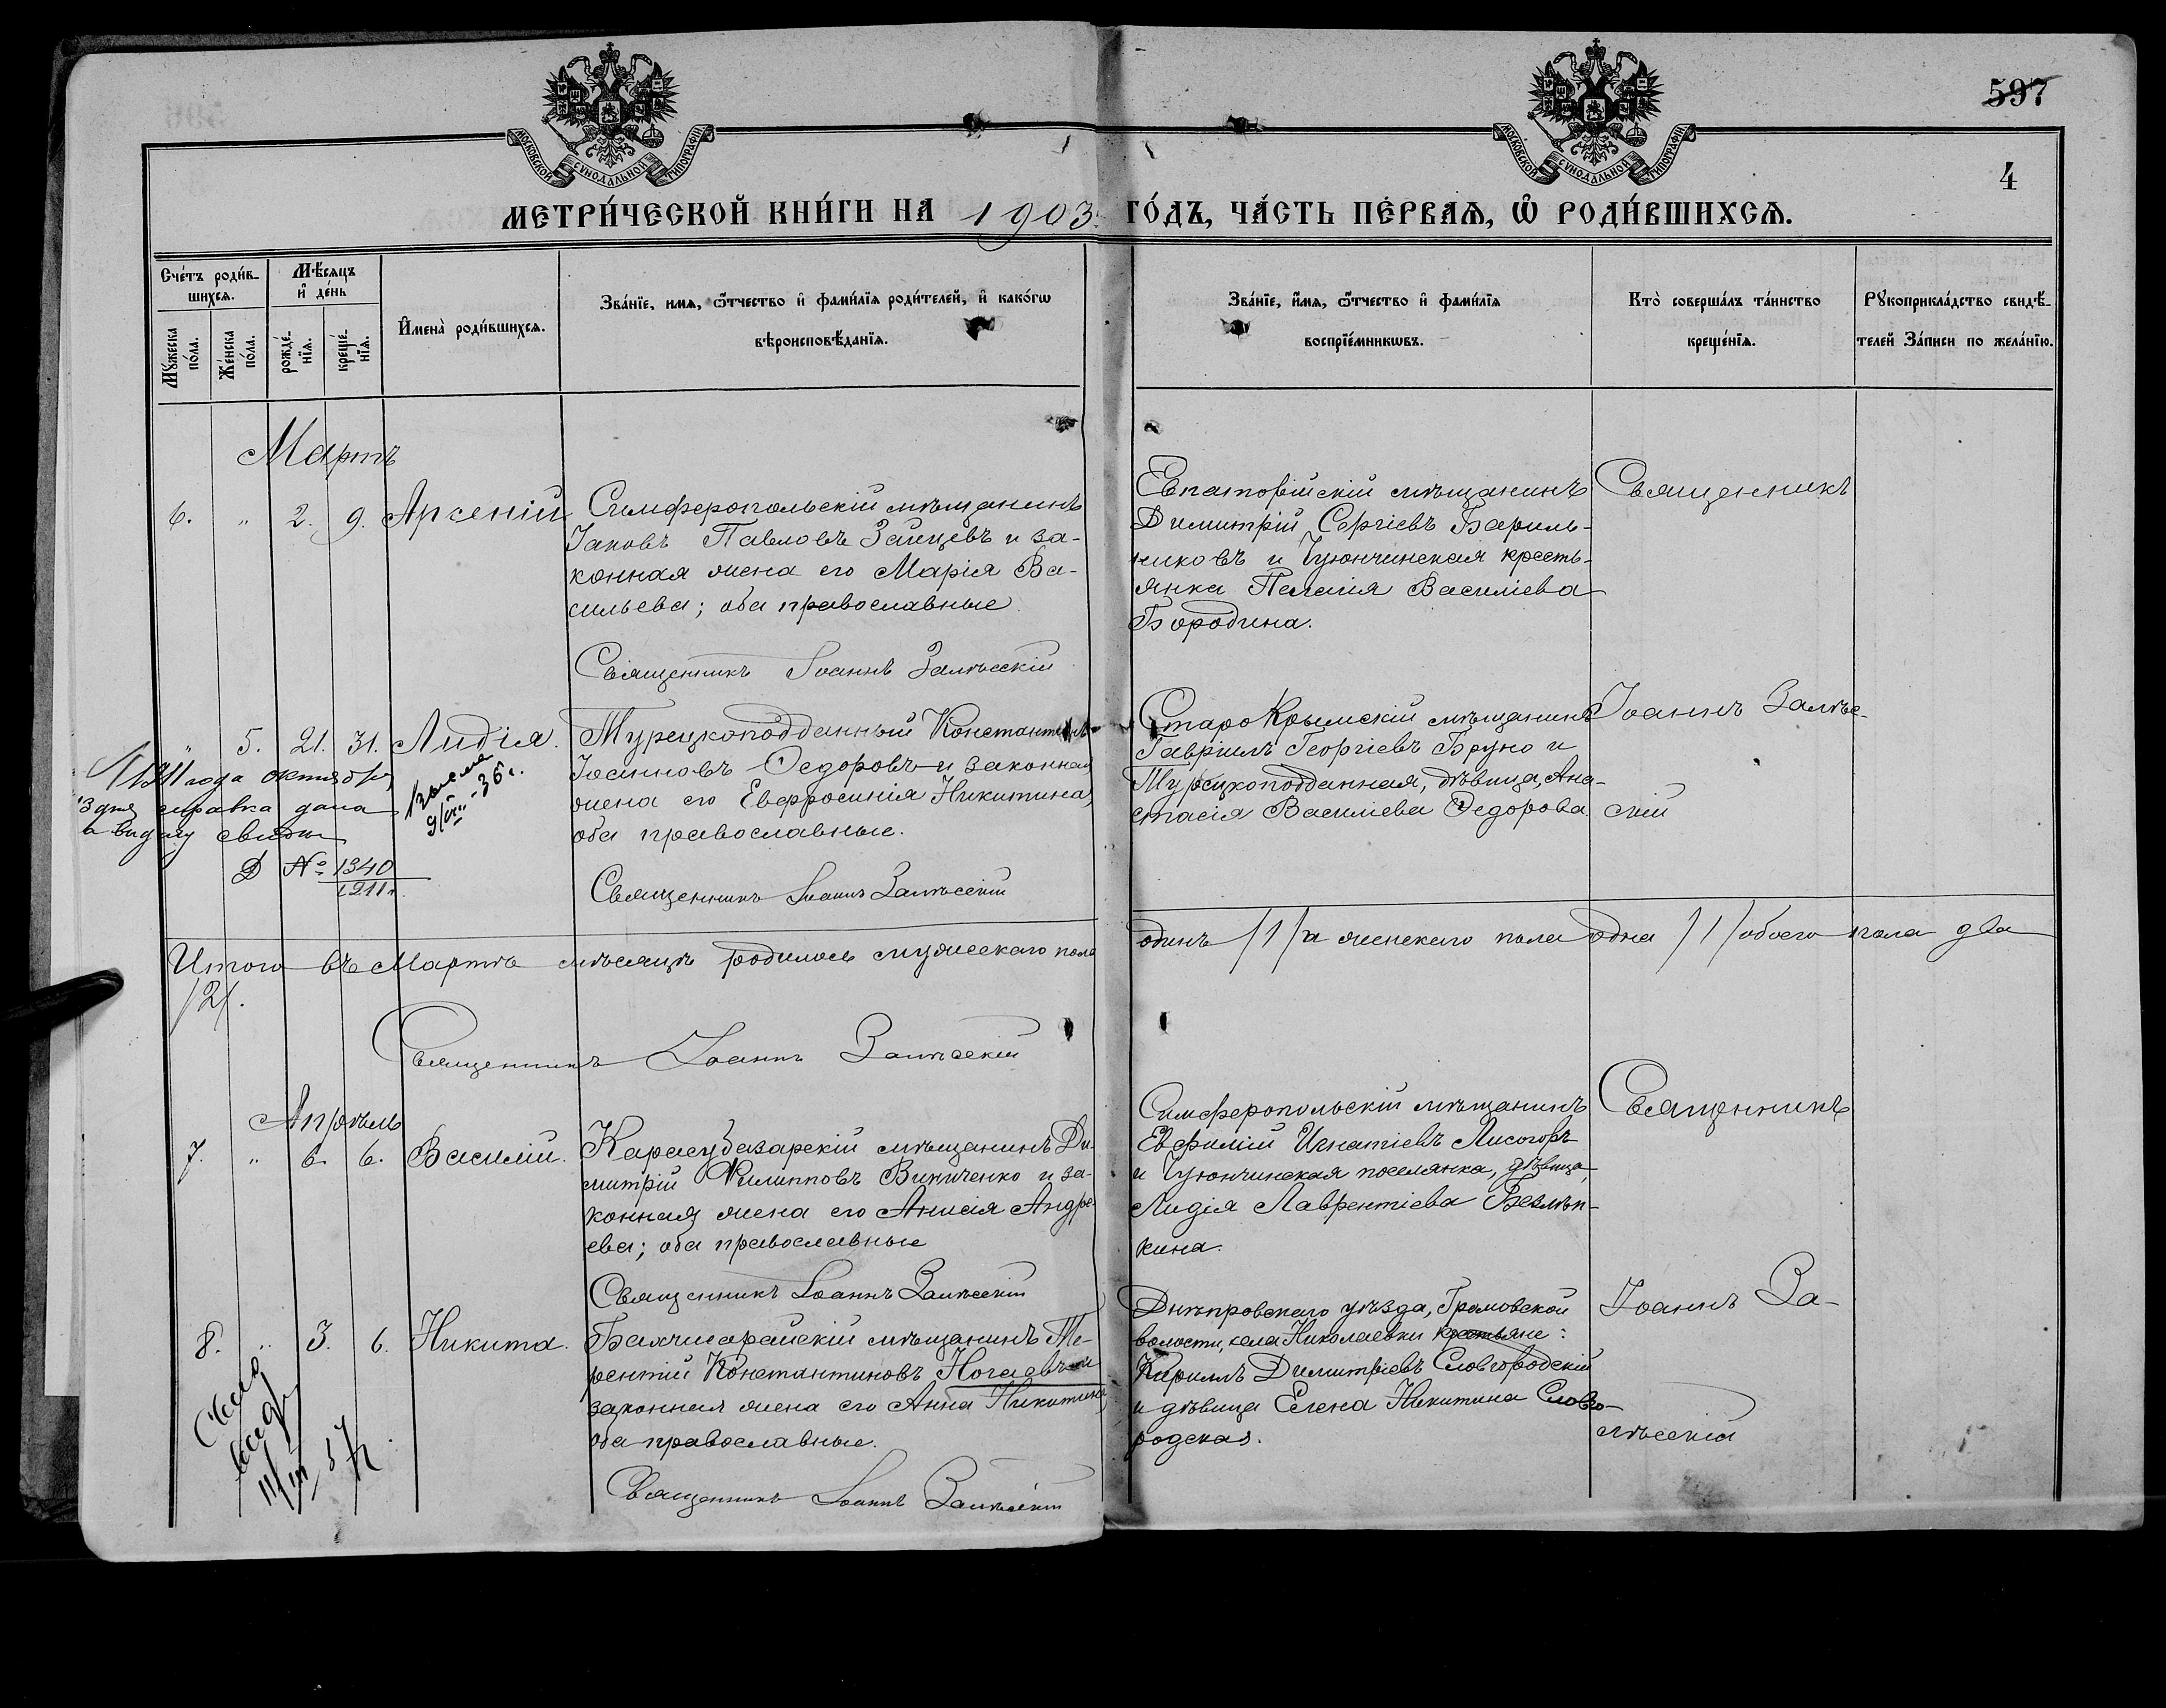 597
4
МОСКОВСКОЙ СѴНОДАЛЬНОЙ ТИПОГРАФІИ
МОСКОВСКОЙ СѴНОДАЛЬНОЙ ТИПОГРАФІИ
МЕТРИ́ЧЕСКОЙ КНИ́ГИ НА 1903 ГО́ДЪ, ЧА́СТЬ ПЕ́РВАѦ, Ѽ РОДИ́ВШИХСѦ.
Сче́тъ роди́в-
шихсѧ.
Мꙋ́жеска по́ла.
Же́нска по́ла.
Мѣ́сѧцъ
и҆ де́нь
рожде́-
нїѧ.
креще́-
нїѧ.
И҆мена̀ роди́вшихсѧ.
Зва́нїе, имѧ, ѻ҆́тчество и҆ фами́лїѧ роди́телей, и҆ како́гѡ
вѣроисповѣ́данїѧ.
Зва́нїе, и҆́мѧ, ѻ҆́тчество и҆ фами́лїѧ
воспрїе́мникѡвъ.
Кто̀ соверша́лъ та́инство
креще́нїѧ.
Рꙋкоприкла́дство свидѣ́-
телей За́писи по жела́нїю.
Мартъ
6. " 2. 9. Арсеній
Симферопольскій мѣщанинъ
Іаковъ Павловъ Зайцевъ и за-
конная жена его Марія Ва-
сильева; оба православные
Священникъ Іоаннъ Залѣсскій
Евпаторійскій мѣщанинъ
Димитрій Сергіевъ Бариль-
никовъ и Чуюнчинская кресть-
янка Пелагія Василіева
Бородина.
Священникъ
" 5. 21. 31. Лидія.
Турецкоподданный Константинъ
Іоанновъ Ѳедоровъ и законная
жена его Евфросинія Никитина,
оба православные.
Священникъ Іоаннъ Залѣсскій
СтароКрымскій мѣщанинъ
Гавріилъ Георгіевъ Бруно и
Турецкоподданная, дѣвица, Ана-
стасія Василіева Ѳедорова.
Іоаннъ Залѣс-
скій
1911 года октября
3 дня справка дана
о выдачу свидѣт
№ 1340
1911 г.
9/VIII-36 г.
Итого въ Мартѣ мѣсяцѣ родилось мужескаго пола одинъ /1/ и женскаго пола одна /1/ обоего пола два
/2/.
Священникъ Іоаннъ Залѣсскій
Апрѣль
7. " 6. 6. Василій.
Карасубазарскій мѣщанинъ Ди-
митрій Филипповъ Виниченко и за-
конная жена его Анисія Андре-
ева; оба православные
Священникъ Іоаннъ Залѣсскій
Симферопольскій мѣщанинъ
Евфимій Игнатіевъ Лисогоръ
и Чуюнчинская поселянка, дѣвица,
Лидія Лаврентіева Безлѣп-
кина.
Священникъ
8. " 3. 6. Никита.
Бахчисарайскій мѣщанинъ Те-
рентій Константиновъ Ногаевъ и
законная жена его Анна Никитина,
оба православные.
Священникъ Іоаннъ Залѣсскій
Днѣпровскаго уѣзда, Громовской
волости, села Николаевки крестьяне:
Кириллъ Димитріевъ Словгородскій
и дѣвица Елена Никитина Словго-
родская.
Іоаннъ За-
лѣсскій